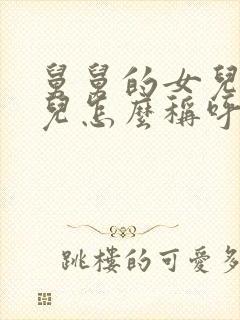 舅舅的女兒
兒怎麼稱呼
跳樓的可愛多